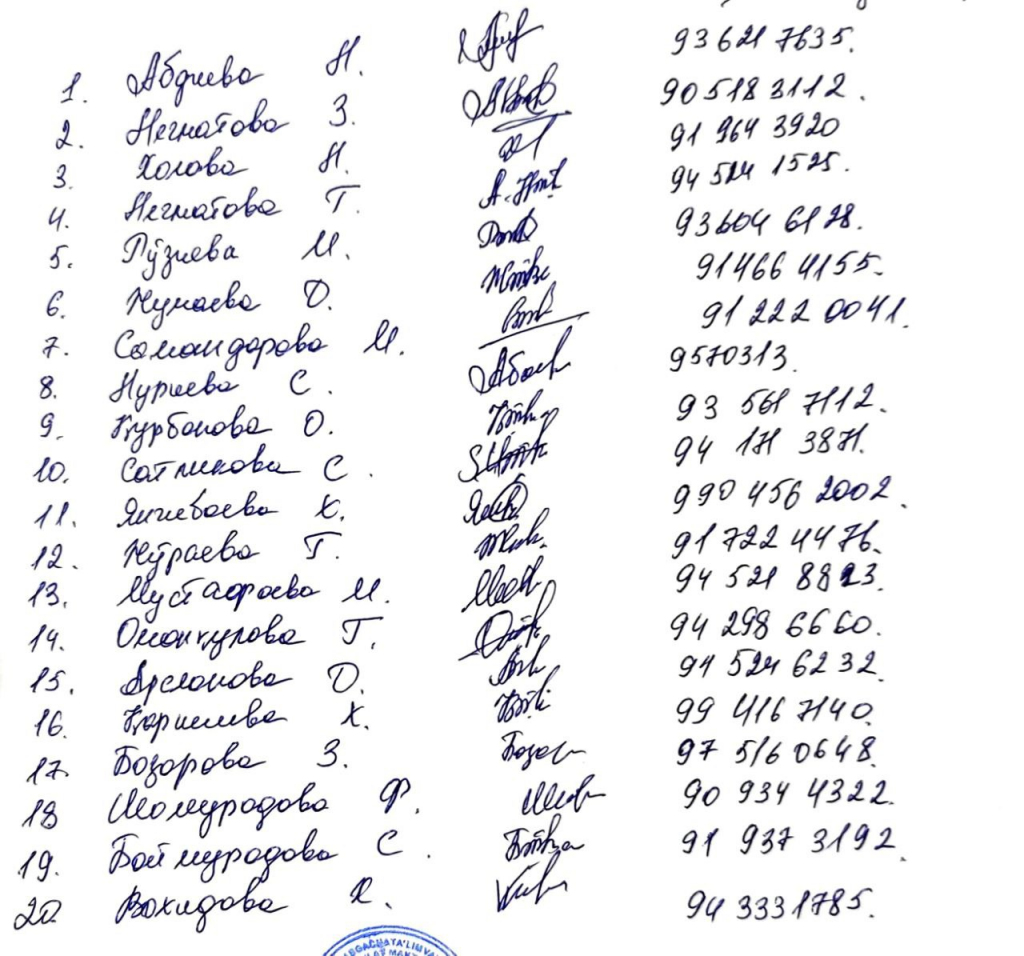 1. Абдиева Н. 93 621 7635.
2. Негматова З. 90 518 3112.
3. Холова Н. 91 964 3920
4. Негматова Г. 94 524 1525.
5. Рўзиева М. 93 604 6128.
6. Жумаева Д. 91 466 4155.
7. Самандарова М. 91 222 0041.
8. Нуриева С. 9570313.
9. Қурбонова О. 93 561 7112.
10. Сатликова С. 94 171 3871.
11. Янгибоева Х. 990 456 2002.
12. Жўраева Г. 91 722 4476.
13. Мустафоева М. 94 521 8823.
14. Омонкулова Г. 94 298 6660.
15. Арслонова Д. 94 524 6232.
16. Каримова Х. 99 416 7140.
17. Бозорова З. 97 516 0648.
18 Шомуродова Ф. 90 934 4322.
19. Боймуродова С. 91 937 3192.
20 Вохидова Х. 94 333 1785.